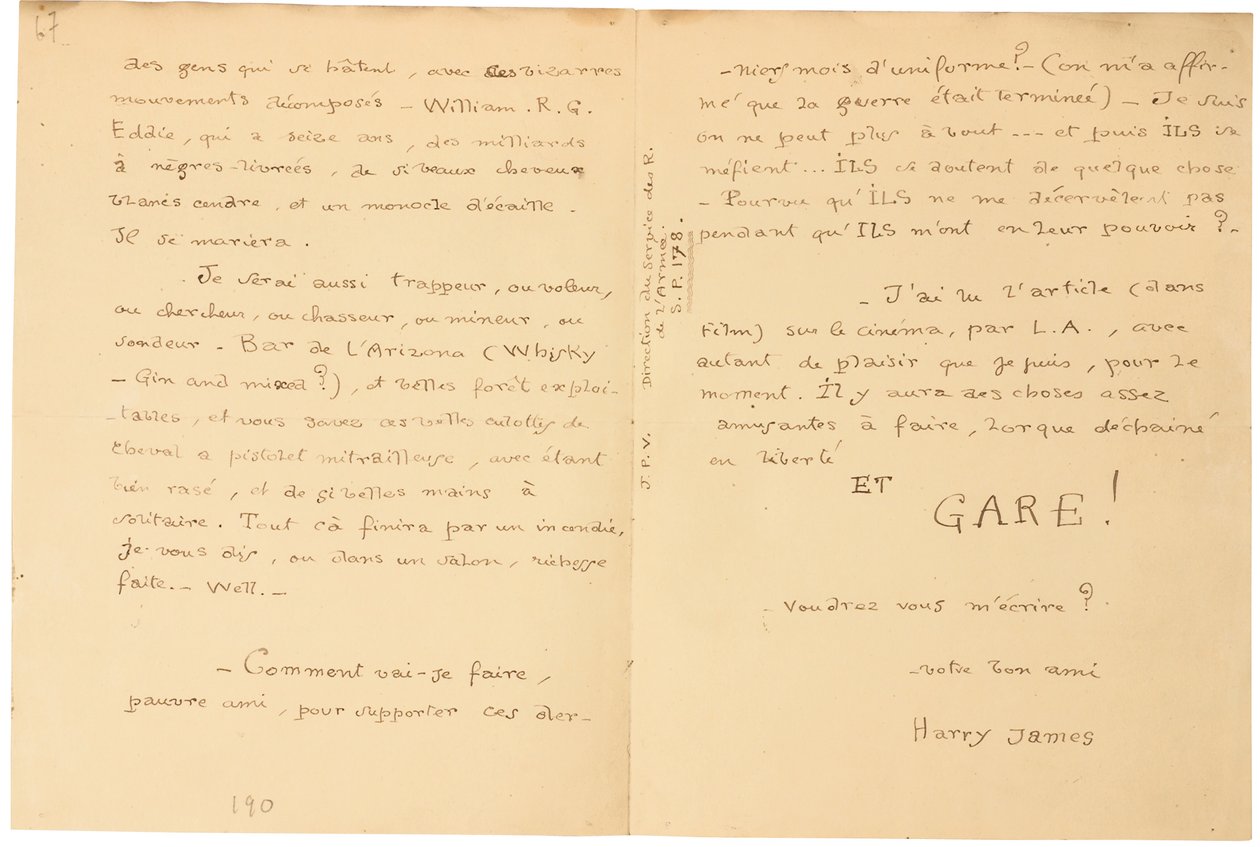 67
des gens qui se hâtent, avec des bizarres
mouvements décomposés — William. R. G.
Eddie, qui a seize ans, des milliards
à nègres-livrées, de si beaux cheveux
blancs cendre, et un monocle d'écaille.
Il se mariera.
Je serai aussi trappeur, ou voleur,
ou chercheur, ou chasseur, ou mineur, ou
sondeur — Bar de L'Arizona (Whisky
— Gin and mixed?), et belles forêt exploi-
-tables, et vous savez ces belles culottes de
cheval a pistolet mitrailleuse, avec étant
bien rasé, et de si belles mains à
solitaire. Tout çà finira par un incendie,
je vous dis, ou dans un salon, richesse
faite. — Well. —
— Comment vai-je faire,
pauvre ami, pour supporter ces der-
190
J. P. V. Direction du Service des R.
de l'Armée.
S. P. 178.
-niers mois d'uniforme? — (on m'a affir-
mé que la guerre était terminéé) — Je suis
on ne peut plus à bout --- et puis ILS se
méfient... ILS se doutent de quelque chose
— Pourvu qu'ILS ne me décervèlent pas
pendant qu'ILS m'ont en leur pouvoir?. 
— J'ai lu l'article (dans
Film) sur le cinéma, par L.A., avec
autant de plaisir que je puis, pour le
moment. Il y aura des choses assez
amusantes à faire, lorque déchainé
en liberté
ET
GARE!
— Voudrez vous m'écrire?
— votre bon ami
Harry James